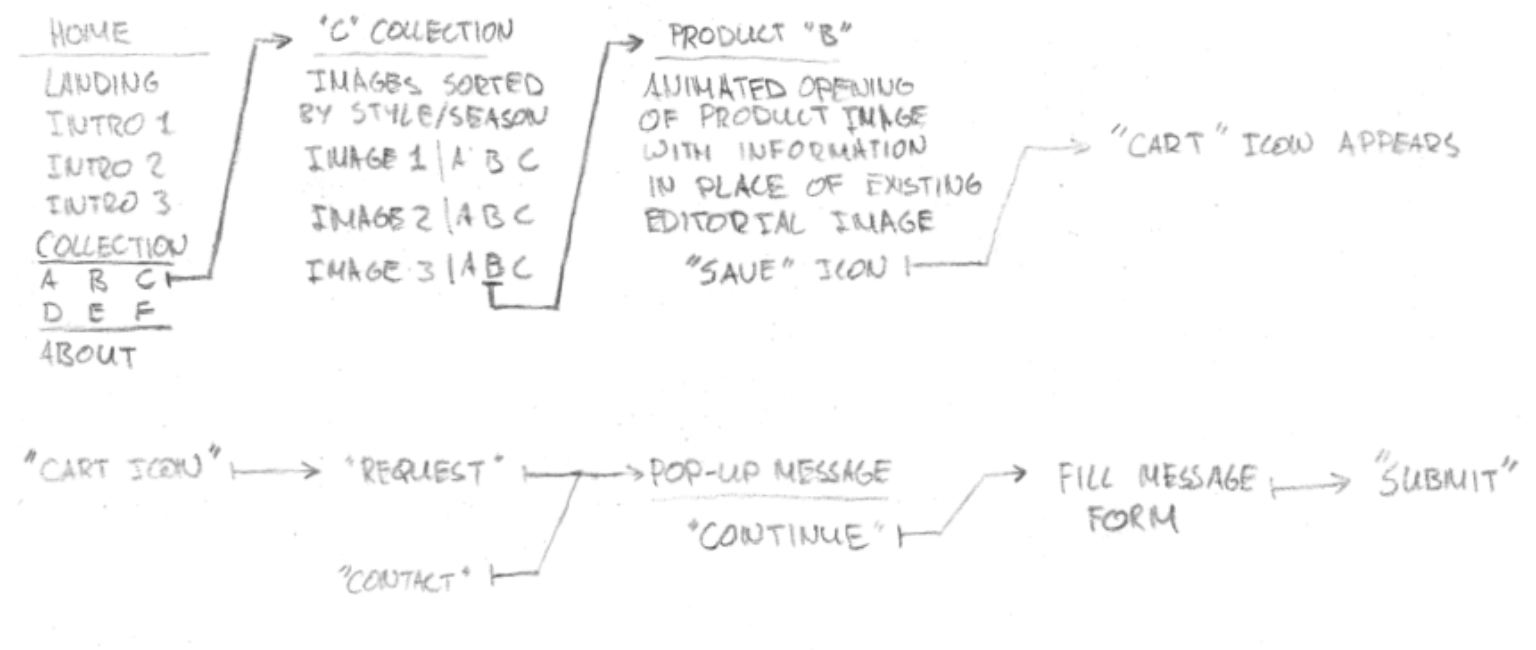 HOME
LANDING
INTRO 1
INTRO 2
INTRO 3
COLLECTION
A B C
D E F
ABOUT
"C" COLLECTION
IMAGES SORTED
BY STYLE/SEASON
IMAGE 1 | A B C
IMAGE 2 | A B C
IMAGE 3 | A B C
PRODUCT "B"
ANIMATED OPENING
OF PRODUCT IMAGE
WITH INFORMATION
IN PLACE OF EXISTING
EDITORIAL IMAGE
"SAVE" ICON
"CART" ICON APPEARS
"CART ICON"
"REQUEST"
"CONTACT"
POP-UP MESSAGE
"CONTINUE"
FILL MESSAGE
FORM
"SUBMIT"